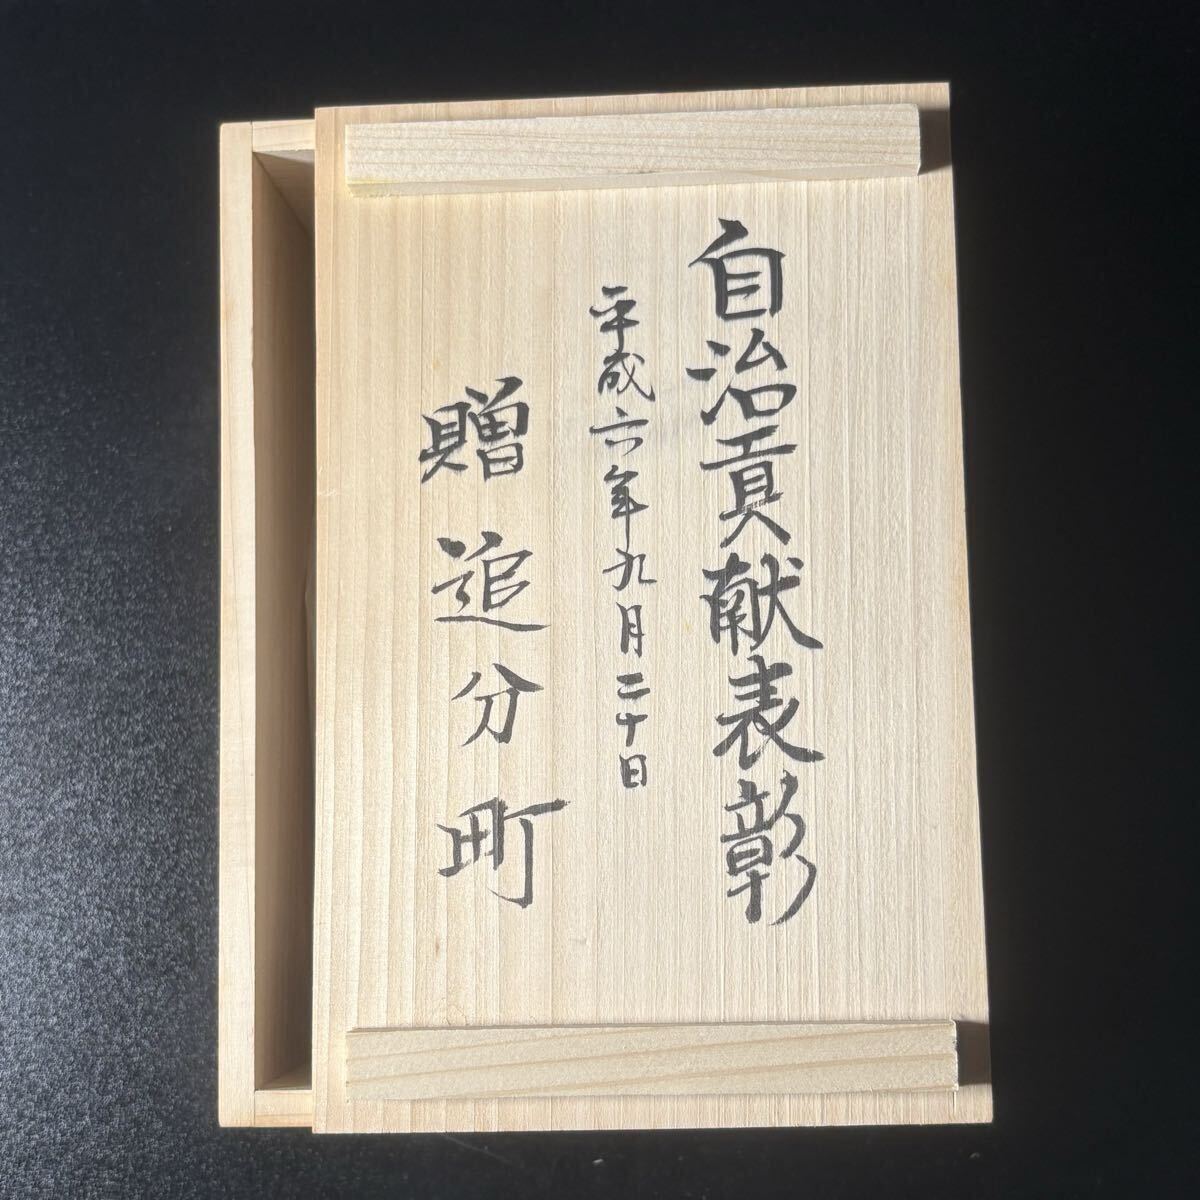 自治貢献表彰
平成六年九月二十日
贈追分町